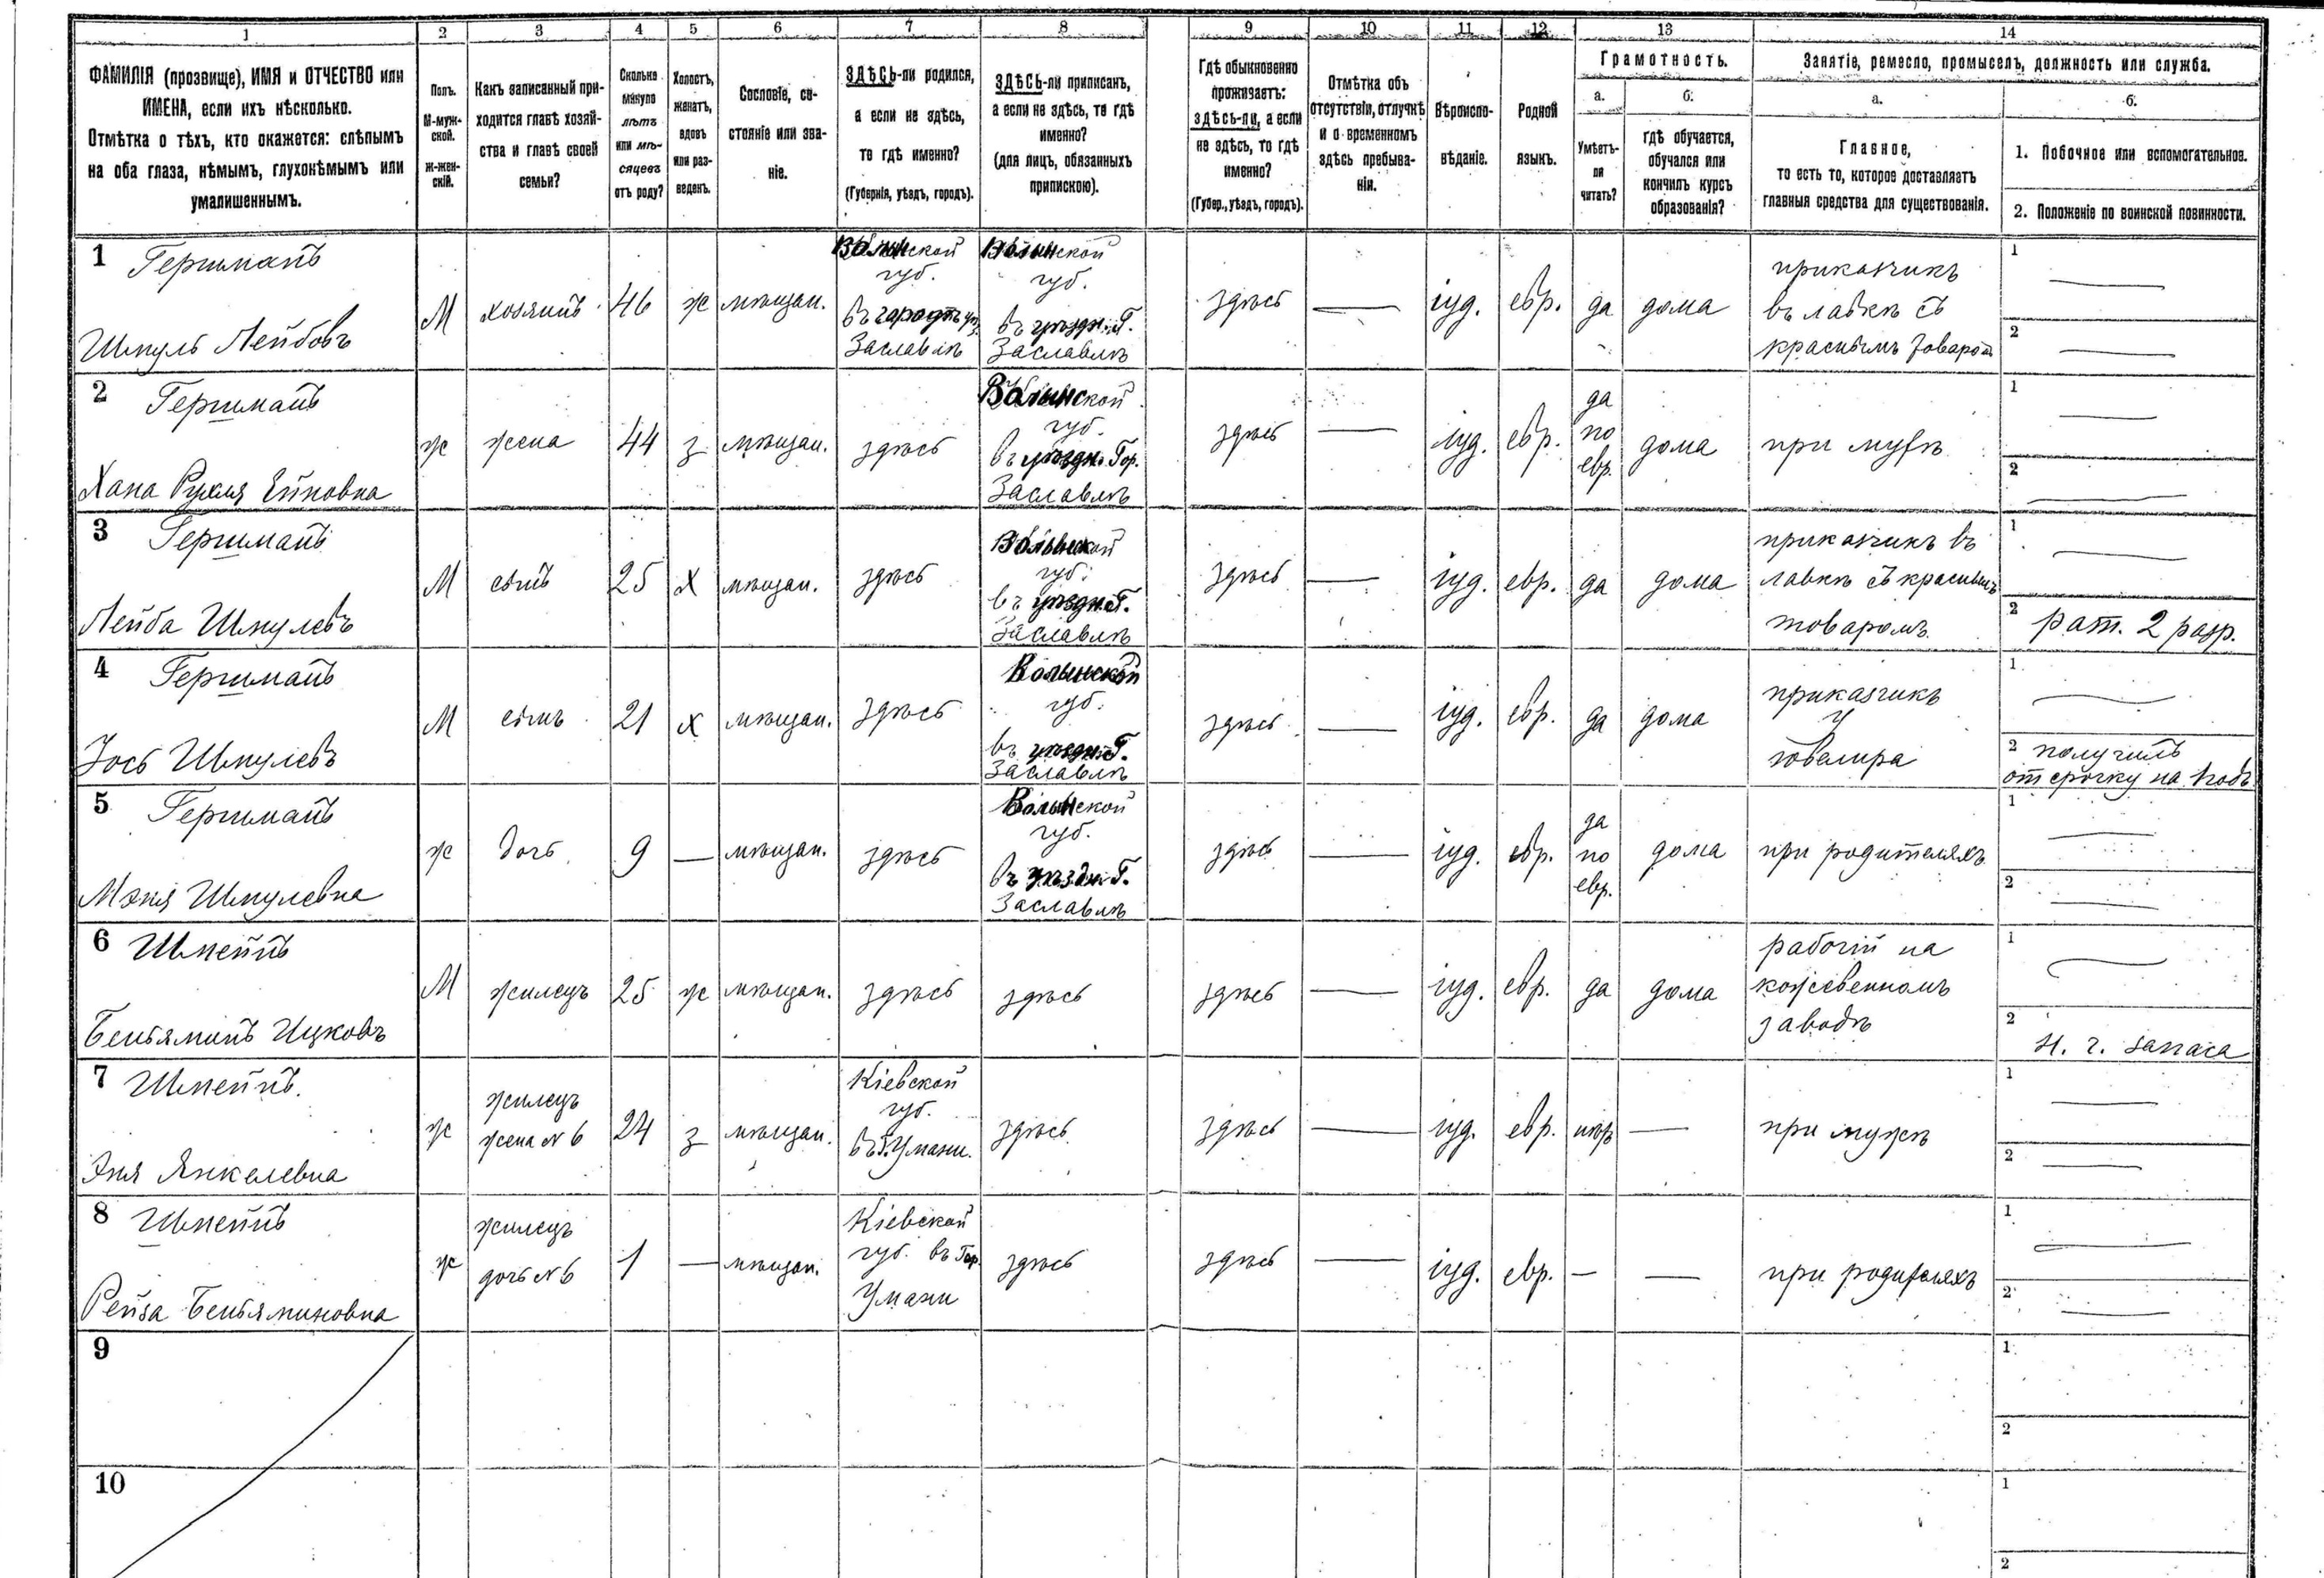 1 2 3 4 5 6 7 8 9 10 11 12 13 14
ФАМИЛІЯ (прозвище), ИМЯ и ОТЧЕСТВО или
ИМЕНА, если ихъ нѣсколько.
Отмѣтка о тѣхъ, кто окажется: слѣпымъ
на оба глаза, нѣмымъ, глухонѣмымъ или
умалишеннымъ.
Полъ.
М-муж-
ской.
Ж-жен-
скій.
Какъ записанный при-
ходится главѣ хозяй-
ства и главѣ своей
семьи?
Сколько
минуло
лѣтъ
или мѣ-
сяцевъ
отъ роду?
Холостъ,
женатъ,
вдовъ
или раз-
веденъ.
Сословіе, со-
стояніе или зва-
ніе.
ЗДѢСЬ-ли родился,
а если не здѣсь,
то гдѣ именно?
(Губернія, уѣздъ, городъ).
ЗДѢСЬ-ли приписанъ,
а если не здѣсь, то гдѣ
именно?
(для лицъ, обязанныхъ
припискою).
Гдѣ обыкновенно
проживаетъ:
здѣсь-ли, а если
не здѣсь, то гдѣ
именно?
(Губер., уѣздъ, городъ).
Отмѣтка объ
отсутствіи, отлучкѣ
и о временномъ
здѣсь пребыва-
ніи.
Вѣроиспо-
вѣданіе.
Родной
языкъ.
Грамотность.
а.
Умѣетъ-
ли
читать?
б.
гдѣ обучается,
обучался или
кончилъ курсъ
образованія?
Занятіе, ремесло, промыселъ, должность или служба.
а.
Главное,
то есть то, которое доставляетъ
главныя средства для существованія.
б.
1. Побочное или вспомогательное.
2. Положеніе по воинской повинности.
1 Гершманъ
Шмуль Лейбовъ
М
хозяинъ
46
ж
мѣщан.
Волынской
губ.
Заславлѣ
Волынской
губ.
въ уѣздн. Г.
Заславлѣ
здѣсь
—
іуд.
евр.
да
дома
приказчикъ
въ лавкѣ съ
краснымъ товаромъ
1 —
2 —
2 Гершманъ
Хана Рухля Ейновна
ж
жена
44
з
мѣщан.
здѣсь
Волынской
губ.
въ уѣздн. Гор.
Заславлѣ
здѣсь
—
іуд.
евр.
да
по
евр.
дома
при мужѣ
1 —
2 —
3 Гершманъ
Лейба Шмулевъ
М
сынъ
25
х
мѣщан.
здѣсь
Волынской
губ.
въ уѣздн. Г.
Заславлѣ
здѣсь
—
іуд.
евр.
да
дома
приказчикъ въ
лавкѣ съ краснымъ
товаромъ
1 —
2 рат. 2 разр.
4 Гершманъ
Іось Шмулевъ
М
сынъ
21
х
мѣщан.
здѣсь
Волынской
губ.
въ уѣздн. Г.
Заславлѣ
здѣсь
—
іуд.
евр.
да
дома
приказчикъ
у
ювелира
1 —
2 получилъ
отсрочку на 1 годъ
5 Гершманъ
Мэня Шмулевна
ж
дочь
9
—
мѣщан.
здѣсь
Волынской
губ.
въ уѣздн. Г.
Заславлѣ
здѣсь
—
іуд.
евр.
да
по
евр.
дома
при родителяхъ
1 —
2 —
6 Шпейнъ
Беньяминъ Ицковъ
М
жилецъ
25
ж
мѣщан.
здѣсь
здѣсь
здѣсь
—
іуд.
евр.
да
дома
рабочій на
кожевенномъ
заводѣ
1 —
2 н. ч. запаса
7 Шпейнъ
Эня Янкелевна
ж
жилецъ
жена № 6
24
з
мѣщан.
Кіевской
губ.
въ г. Умани.
здѣсь
здѣсь
—
іуд.
евр.
нѣтъ
—
при мужѣ
1 —
2 —
8 Шпейнъ
Рейза Беньяминовна
ж
жилецъ
дочь № 6
1
—
мѣщан.
Кіевской
губ. въ Гор.
Умани
здѣсь
здѣсь
—
іуд.
евр.
—
—
при родителяхъ
1 —
2 —
9
1
2
10
1
2